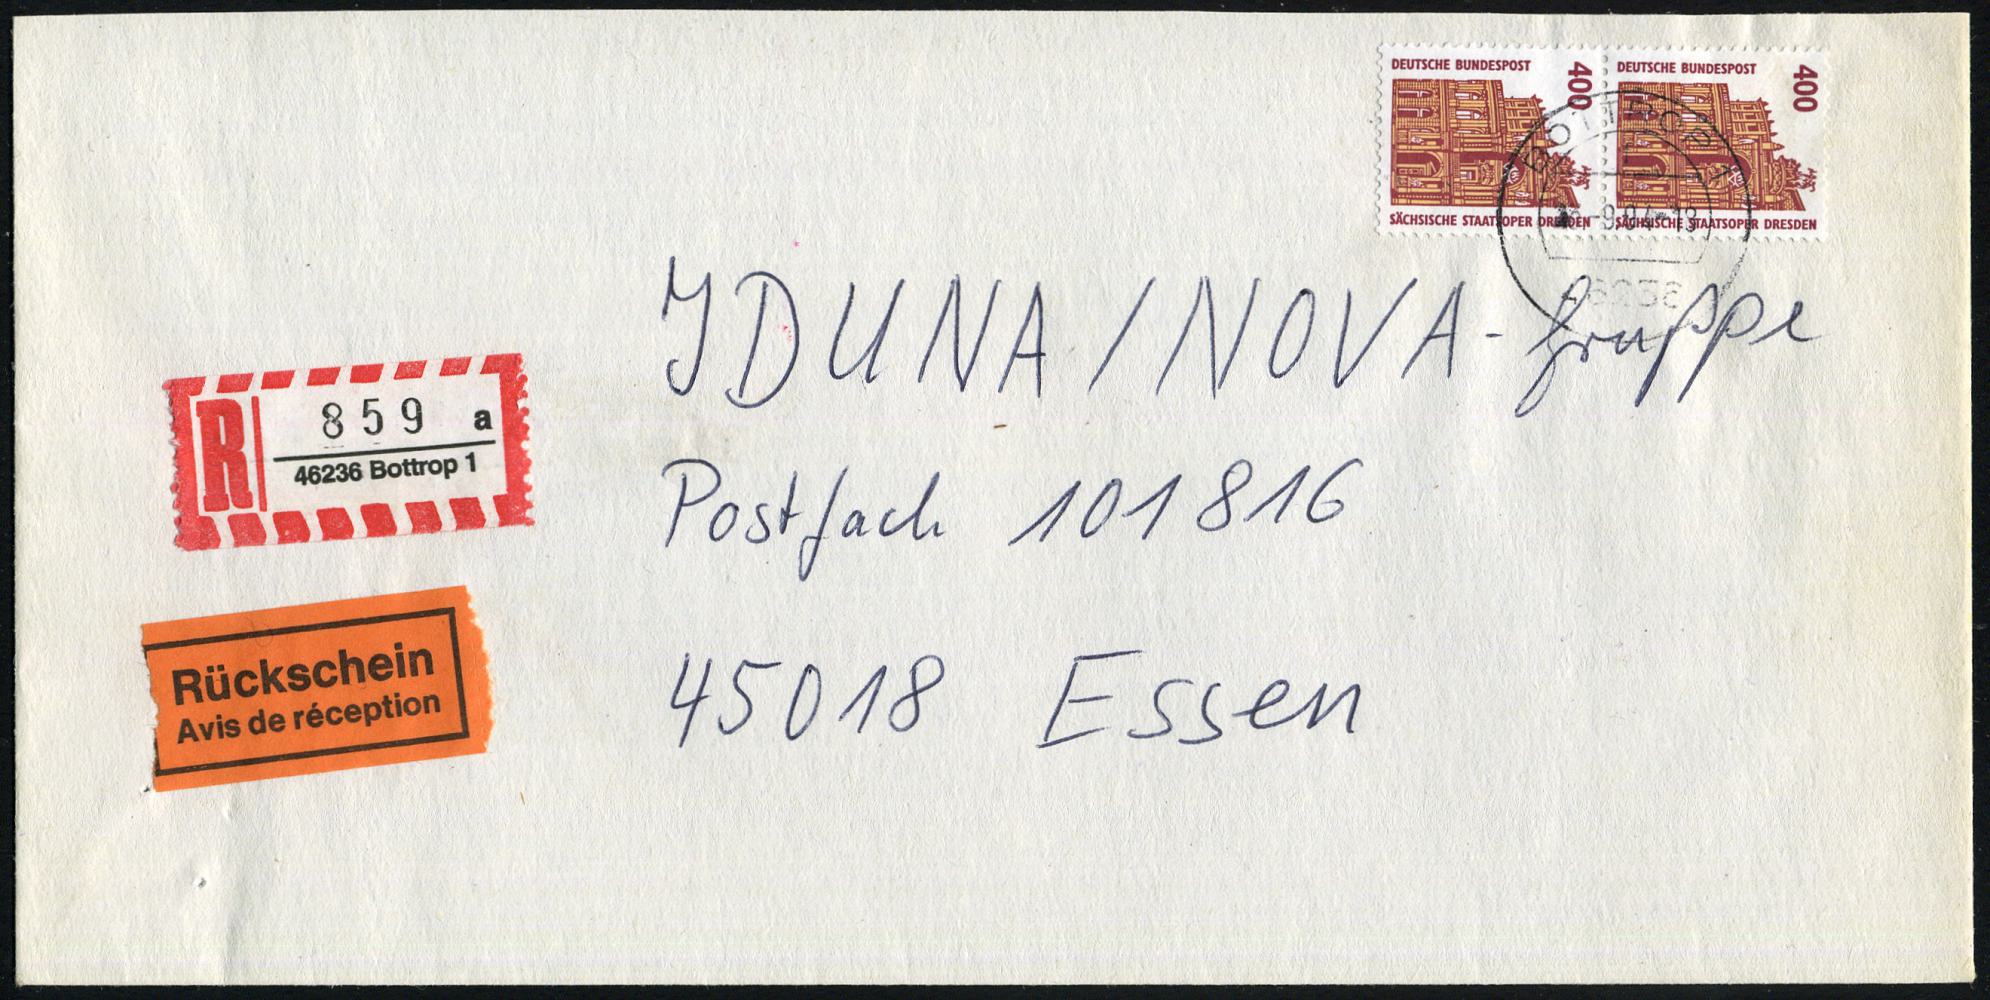 DEUTSCHE BUNDESPOST 400
SÄCHSISCHE STAATSOPER DRESDEN
DEUTSCHE BUNDESPOST 400
SÄCHSISCHE STAATSOPER DRESDEN
BOTTROP 1
-9.94-18
46236
JDUNA/NOVA-Gruppe
Postfach 101816
45018 Essen
R 859 a
46236 Bottrop 1
Rückschein
Avis de réception